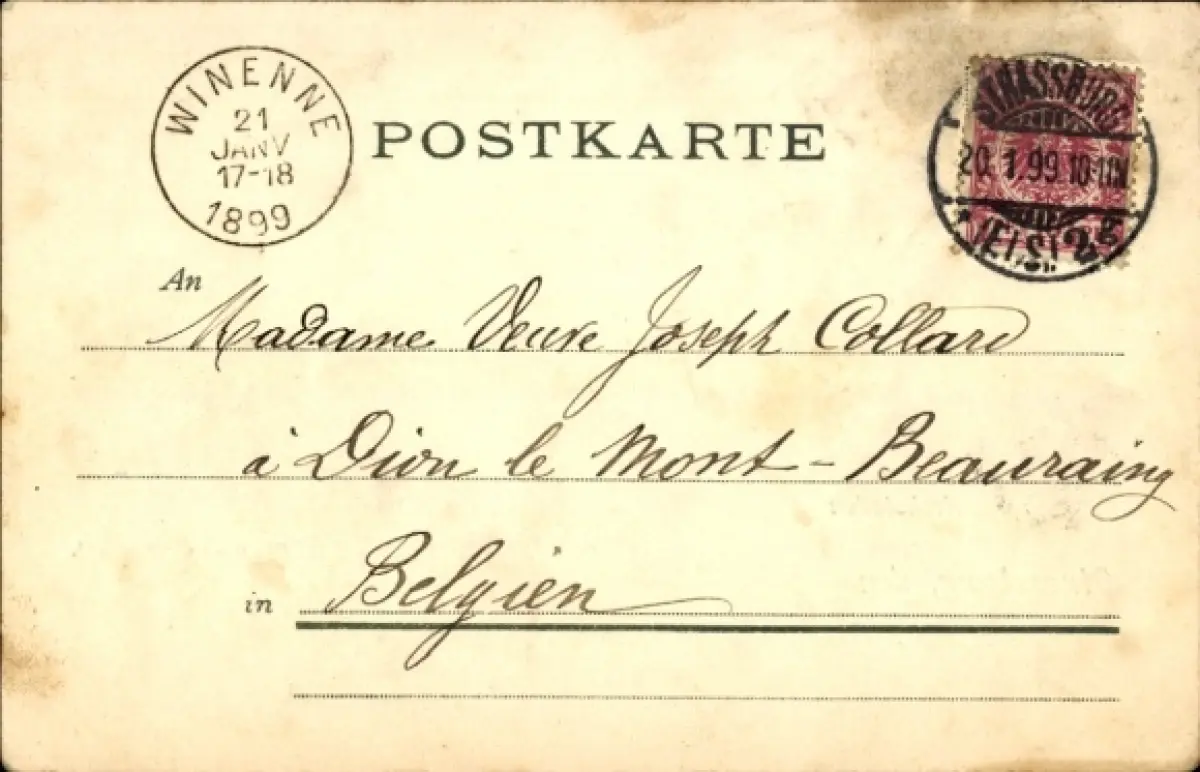 WINENNE
21
JANV
17-18
1899
POSTKARTE
STRASSBURG
20.1.99 10-11N.
(ELS) 2g
An
Madame Veuve Joseph Collard
à Dion le Mont - Beauraing
in Belgien